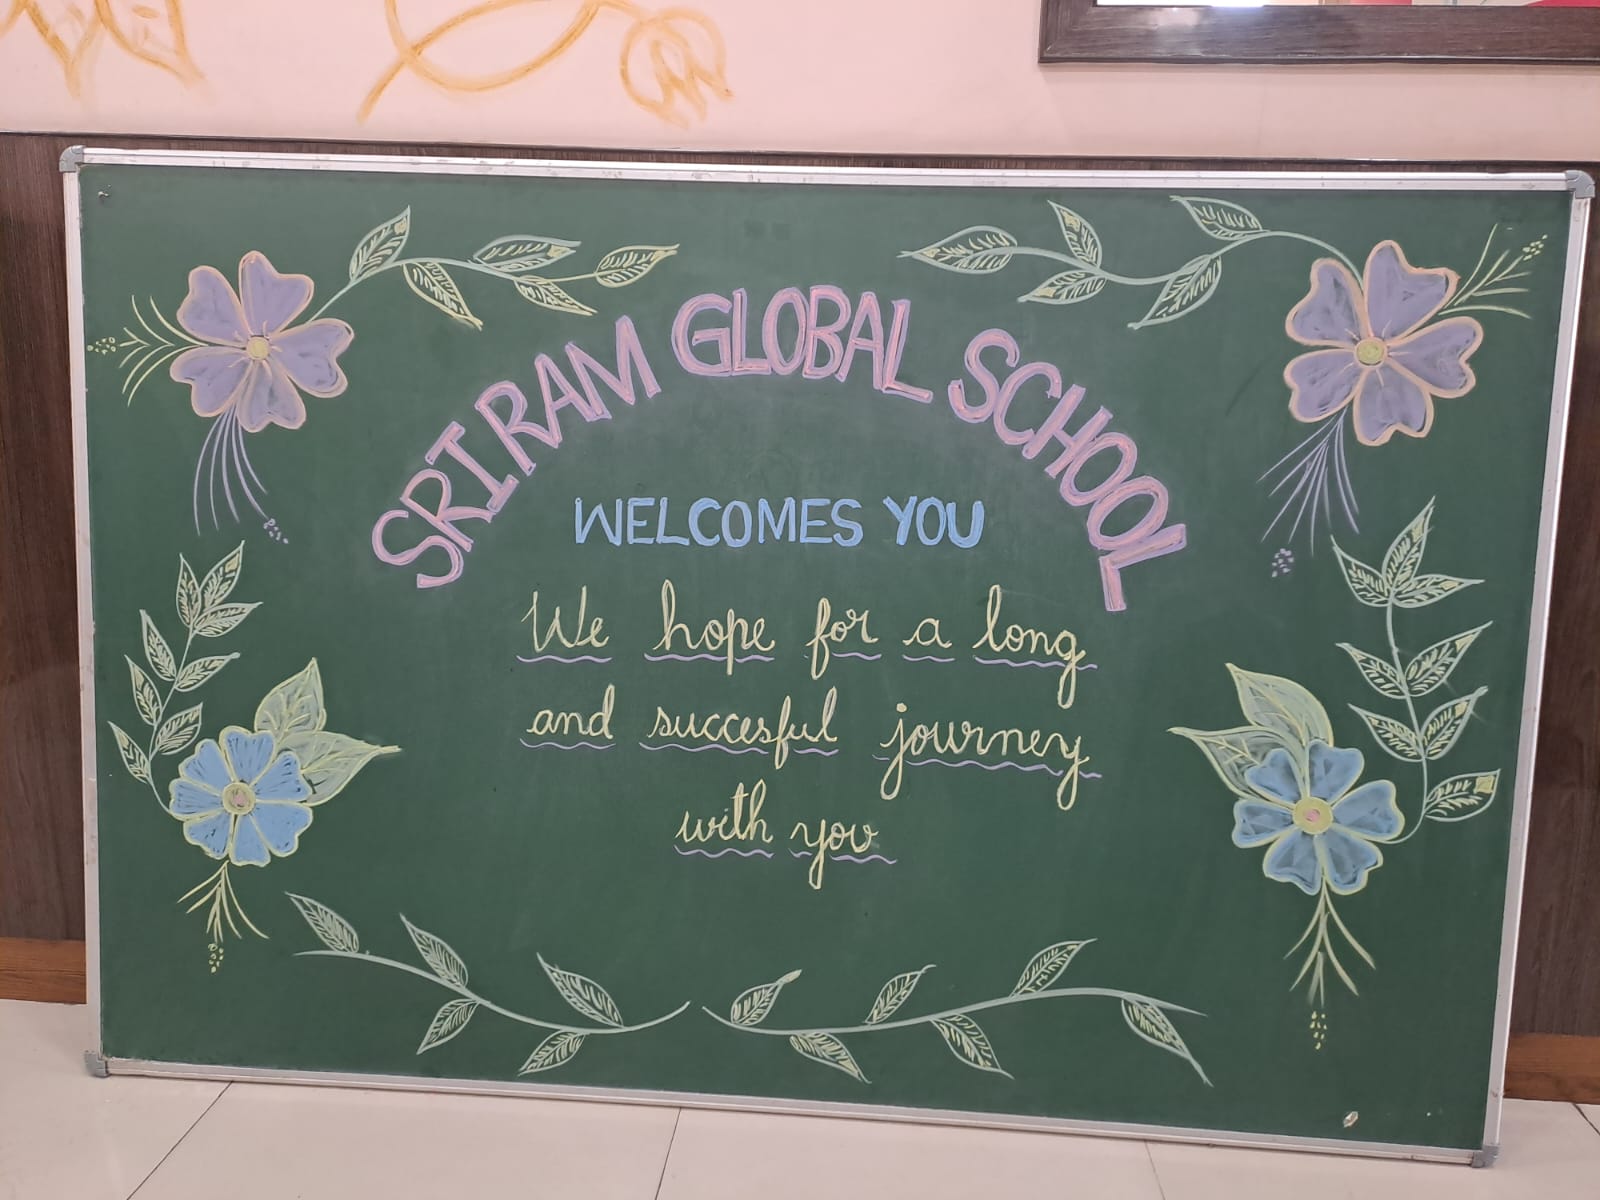 SRI RAM GLOBAL SCHOOL
WELCOMES YOU
We hope for a long
and succesful journey
with you